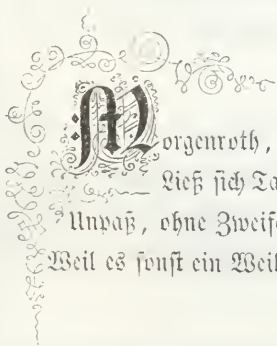 Morgenroth,
Ließ sich Ta
Unpaß, ohne Zweife
Weil es sonst ein Weil